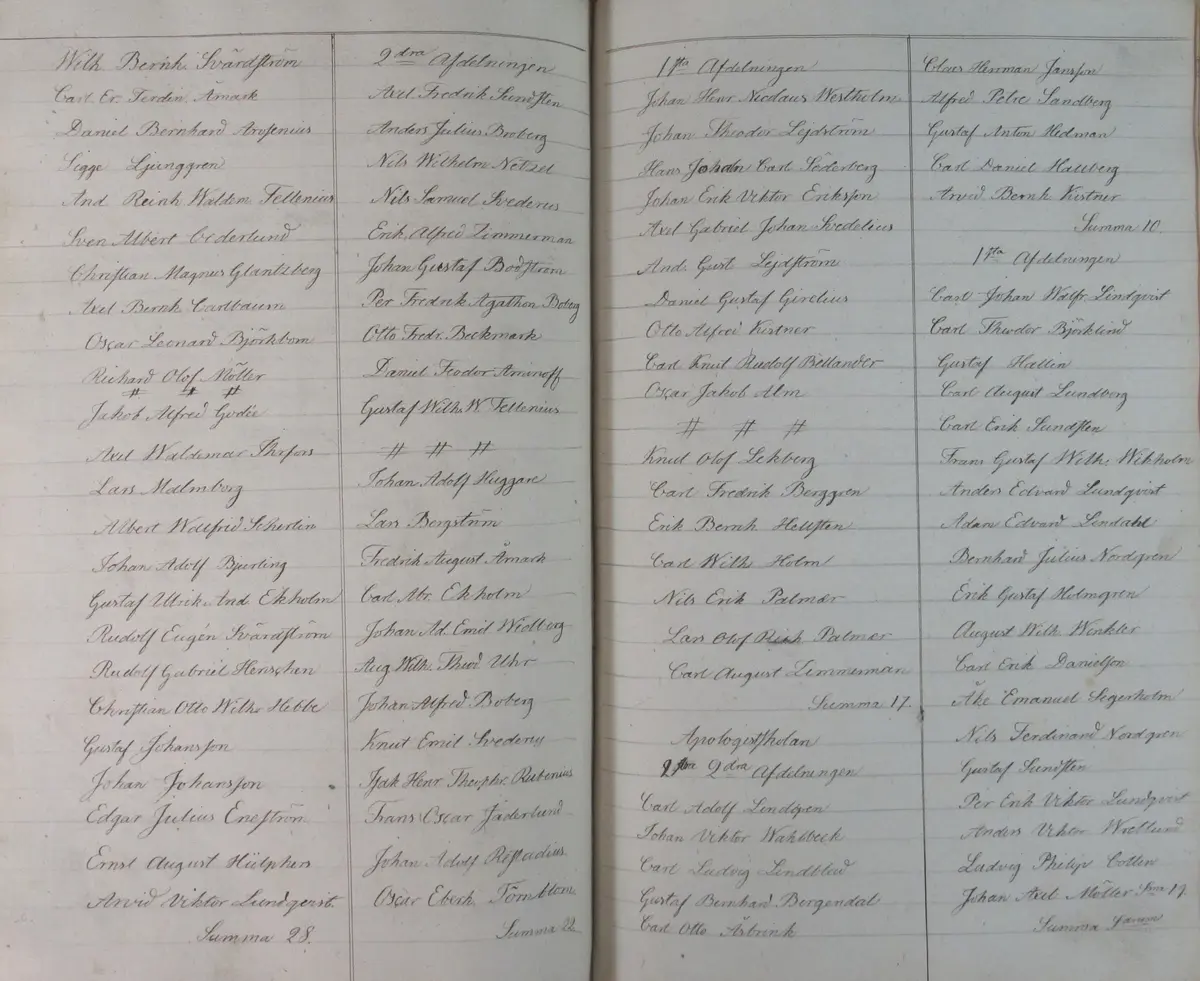 Wilh Bernh Svärdström
Carl Er. Ferdin. Åmark
Daniel Bernhard Arosenius
Sigge Ljunggren
And Reinh Waldem Fellenius
Sven Albert Cederlund
Christian Magnus Glantzberg
Axel Bernh Carlbaum
Oscar Leonard Björkbom
Richard Olof Möller
# # #
Jakob Alfred Godée
Axel Waldemar
Lars Malmborg
Albert Walfrid Schertin
Johan Adolf Bjurling
Gustaf Ulrik And Ekholm
Rudolf Eugén Svärdström
Rudolf Gabriel Henschen
Christian Otto Wilh. Hebbe
Gustaf Johansson
Johan Johansson
Edgar Julius Eneström
Ernst August Hülphers
Arvid Viktor Lundqvist
Summa 28.
2dra Afdelningen
Axel Fredrik Sundsten
Anders Julius Broberg
Nils Wilhelm Netzel
Nils Samuel Svederus
Erik Alfred Zimmerman
Johan Gustaf Bodström
Per Fredrik Agathon Boberg
Otto Fredr. Beckmark
Daniel Feodor Aminoff
Gustaf Wilh. W Fellenius
# # #
Johan Adolf Huggare
Lars Bergström
Fredrik August Åmark
Carl Abr. Ekholm
Johan Ad. Emil Widborg
Aug Wilh. Thiod Uhr
Johan Alfred Boberg
Knut Emil Svederus
Isak Henr Theophr. Rubenius
Frans Oscar Jäderlund
Johan Adolf Rystadius
Oscar Eberh Törnblom
Summa 22
1sta Afdelningen
Johan Henr Nicolaus Westholm
Johan Theodor Lejdström
Hans Johan Carl Söderberg
Johan Erik Viktor Eriksson
Axel Gabriel Johan Svedelius
And. Gust Lejdström
Daniel Gustaf Girelius
Otto Alfred Kistner
Carl Knut Rudolf Bellander
Oscar Jakob Alm
# # #
Knut Olof Lekberg
Carl Fredrik Berggren
Erik Bernh Hellsten
Carl Wilh Holm
Nils Erik Palmær
Lars Olof Palmær
Carl August Zimmerman
Summa 17.
Apologistskolan
2dra Afdelningen
Carl Adolf Lindgren
Johan Viktor Wahlbeck
Carl Ludvig Lindblad
Gustaf Bernhard Bergendal
Carl Otto Åsbrink
Claes Herman Jansson
Alfred Petre Sandberg
Gustaf Anton Hedman
Carl Daniel Hallberg
Arvid Bernh Kistner
Summa 10.
1sta Afdelningen
Carl Johan Walfr. Lindqvist
Carl Theodor Björklind
Gustaf Hallin
Carl August Lundberg
Carl Erik Sundsten
Frans Gustaf Wilh. Wikholm
Anders Edvard Lundqvist
Adam Edvard Lindahl
Bernhard Julius Nordgren
Erik Gustaf Holmgren
August Wilh Winkler
Carl Erik Danielson
Åke Emanuel Segerholm
Nils Ferdinand Nordgren
Gustaf Sundsten
Per Erik Viktor Lundqvist
Anders Viktor Wretlund
Ludvig Philip Collin
Johan Axel Möller 19.
Summa